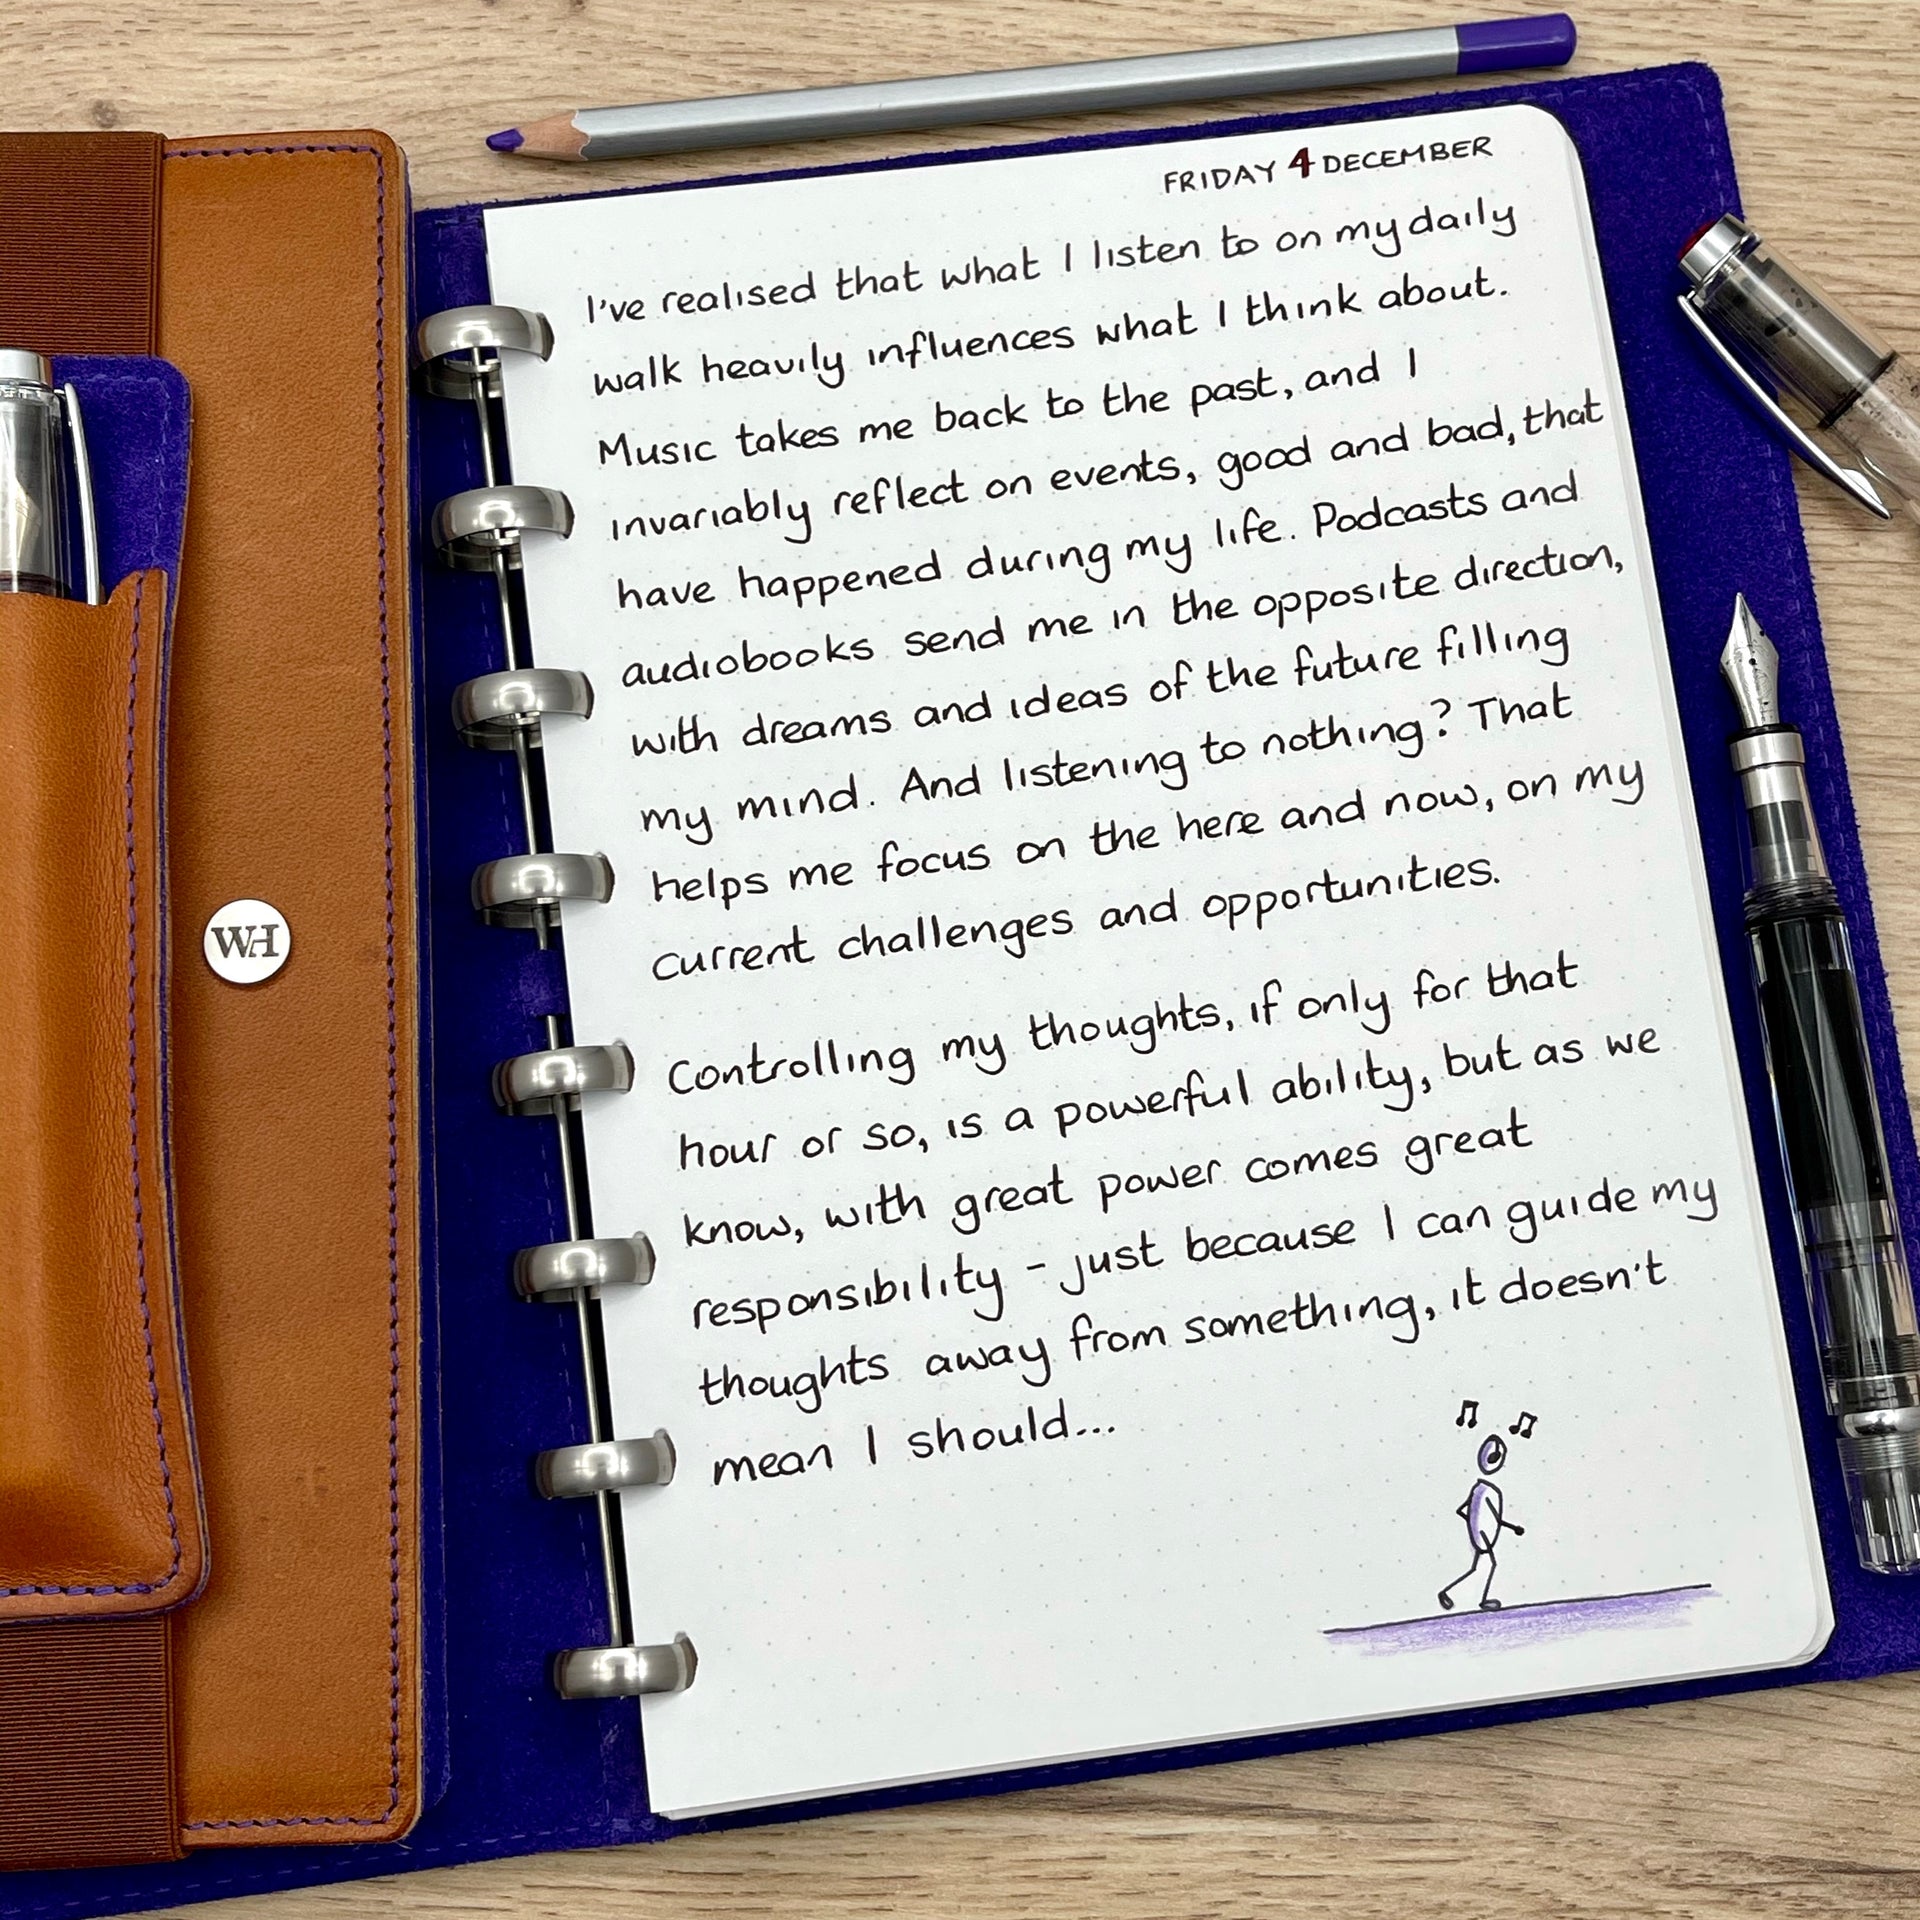 FRIDAY 4 DECEMBER
I've realised that what I listen to on my daily
walk heavily influences what I think about.
Music takes me back to the past, and I
invariably reflect on events, good and bad, that
have happened during my life. Podcasts and
audiobooks send me in the opposite direction,
with dreams and ideas of the future filling
my mind. And listening to nothing? That
helps me focus on the here and now, on my
current challenges and opportunities.
Controlling my thoughts, if only for that
hour or so, is a powerful ability, but as we
know, with great power comes great
responsibility - just because I can guide my
thoughts away from something, it doesn't
mean I should...
WH